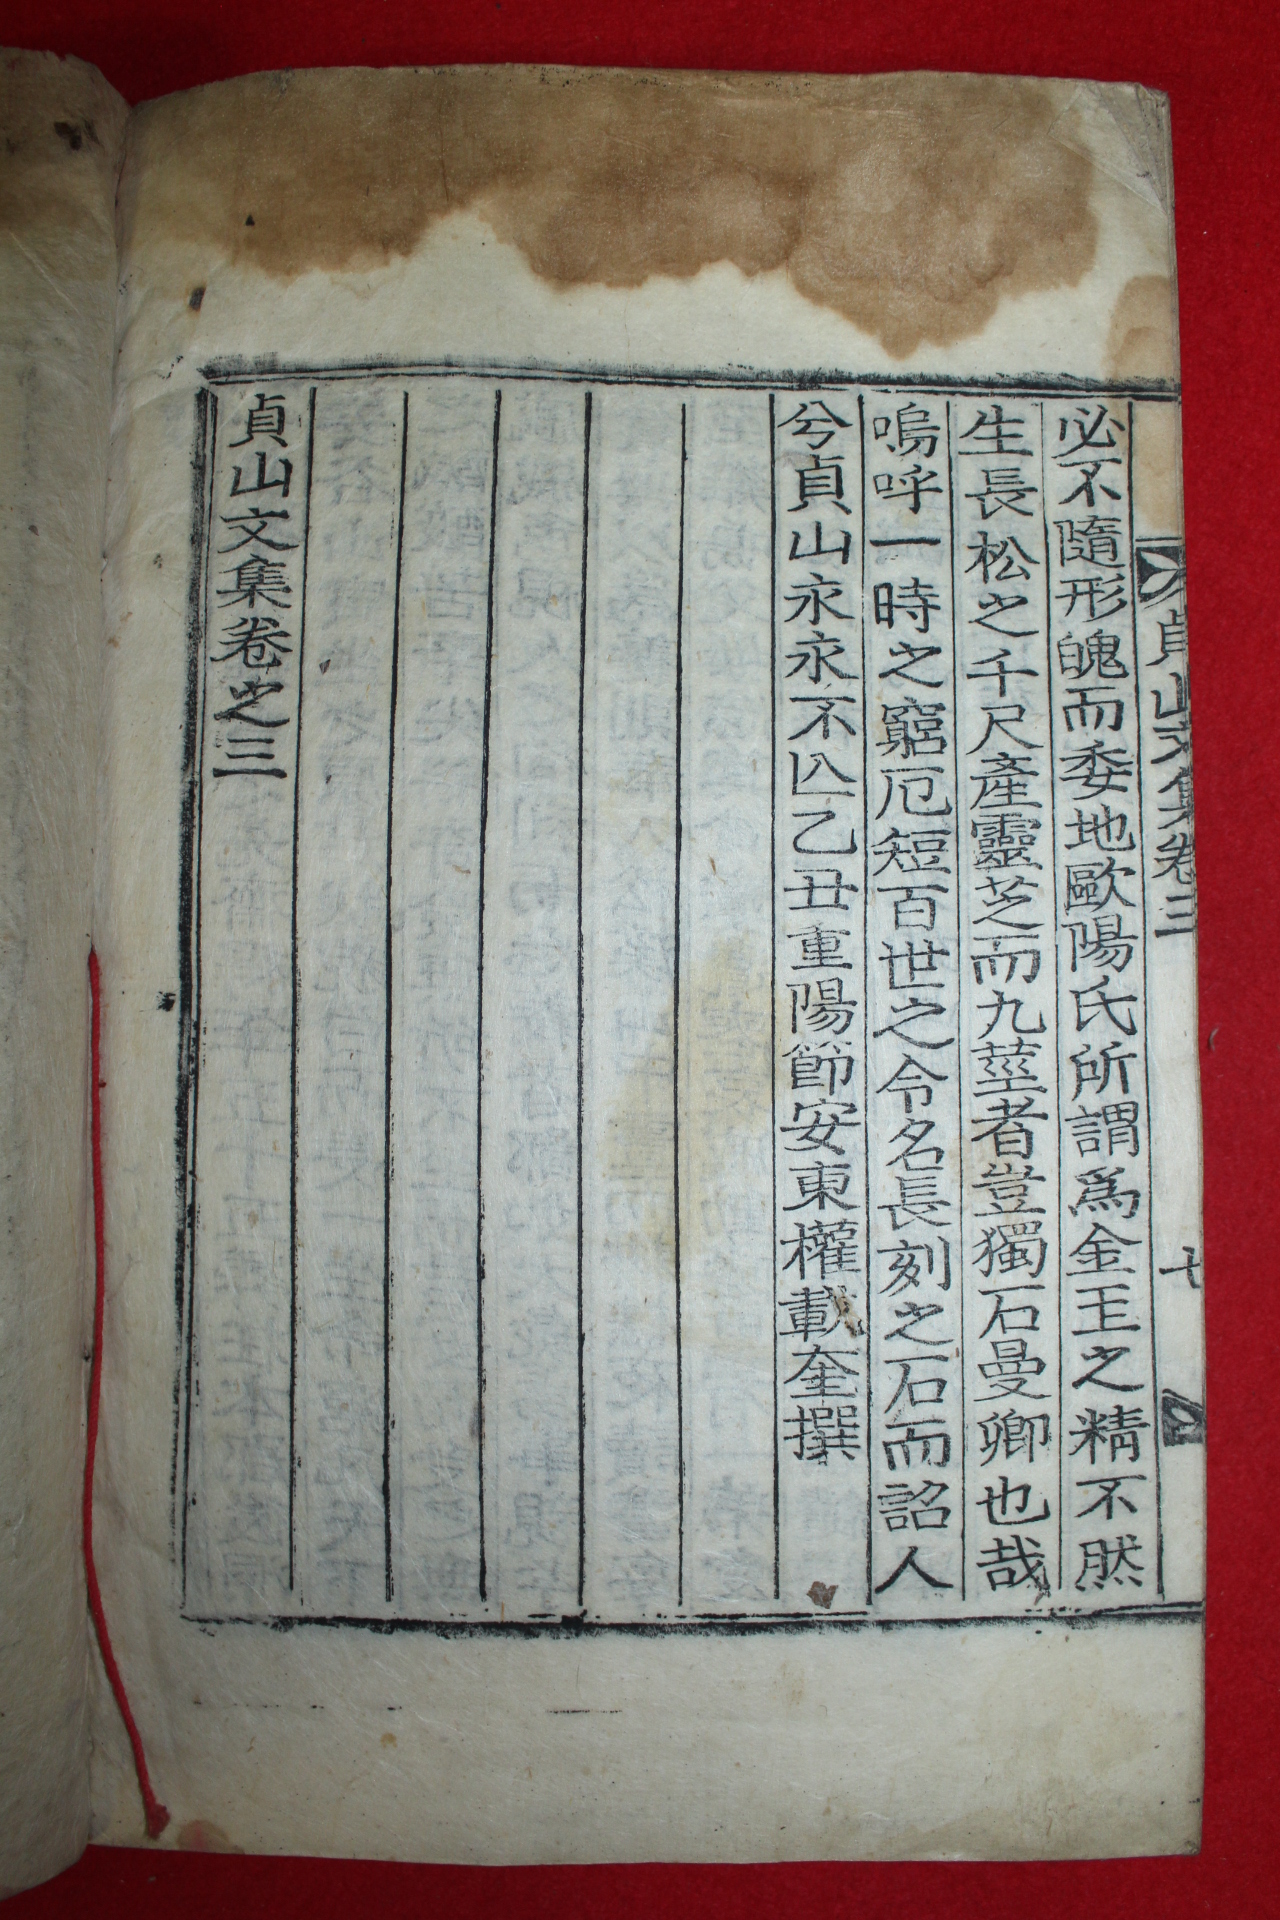 必不隨形魄而委地歐陽氏所謂爲金玉之精不然
生長松之千尺產靈芝而九莖者豈獨石曼卿也哉
嗚呼一時之窮厄短百世之令名長刻之石而詔人
兮貞山永永不亾乙丑重陽節安東權載奎撰
貞山文集卷之三
貞山文集卷三
七